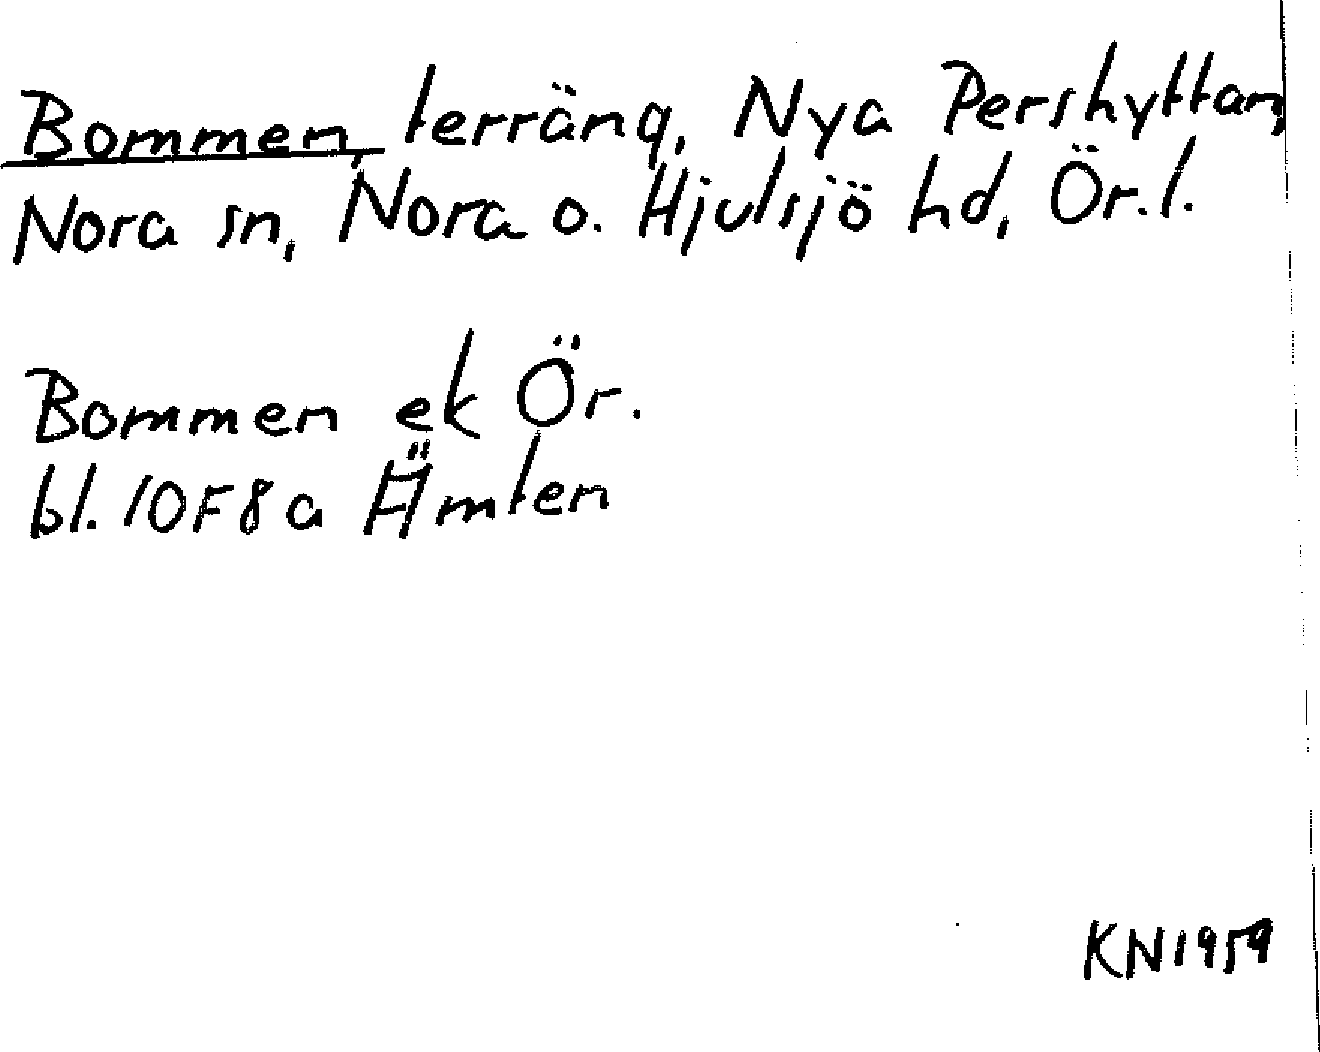 Bommen, terräng, Nya Pershyttan,
Nora sn, Nora o. Hjulsjö hd, Ör.l.
Bommen ek Ör.
bl. 10F8a Ämten
KN1959